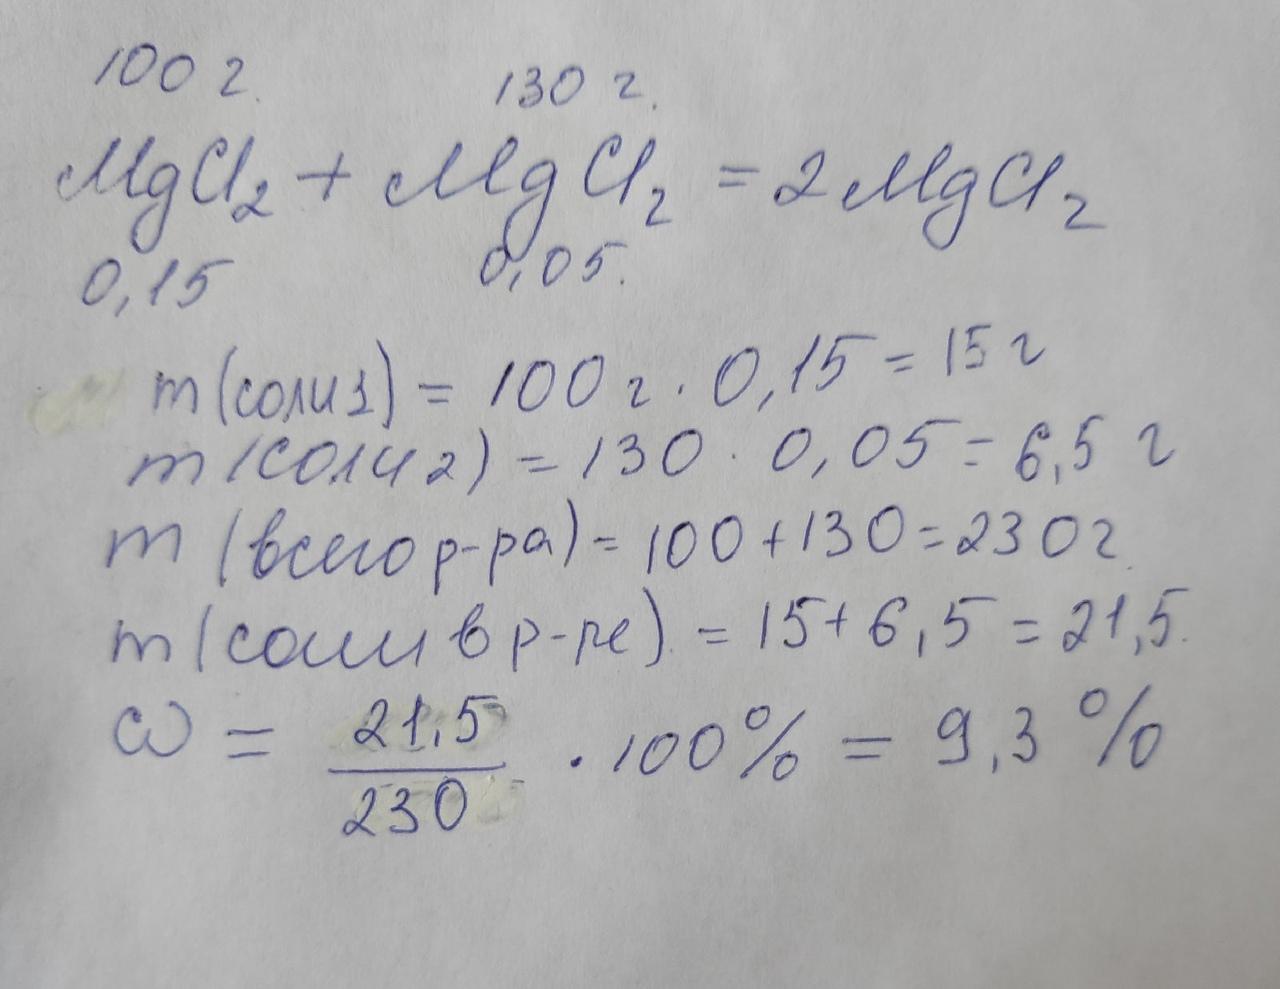 100 г. 130 г.
MgCl₂ + MgCl₂ = 2MgCl₂
0,15 0,05.
m(соли1) = 100 г. 0,15 = 15 г
m(соли 2) = 130 · 0,05 = 6,5 г
m (всего р-ра) = 100 + 130 = 230 г.
m (соли в р-ре) = 15 + 6,5 = 21,5.
ω = 21,5 / 230 · 100% = 9,3 %